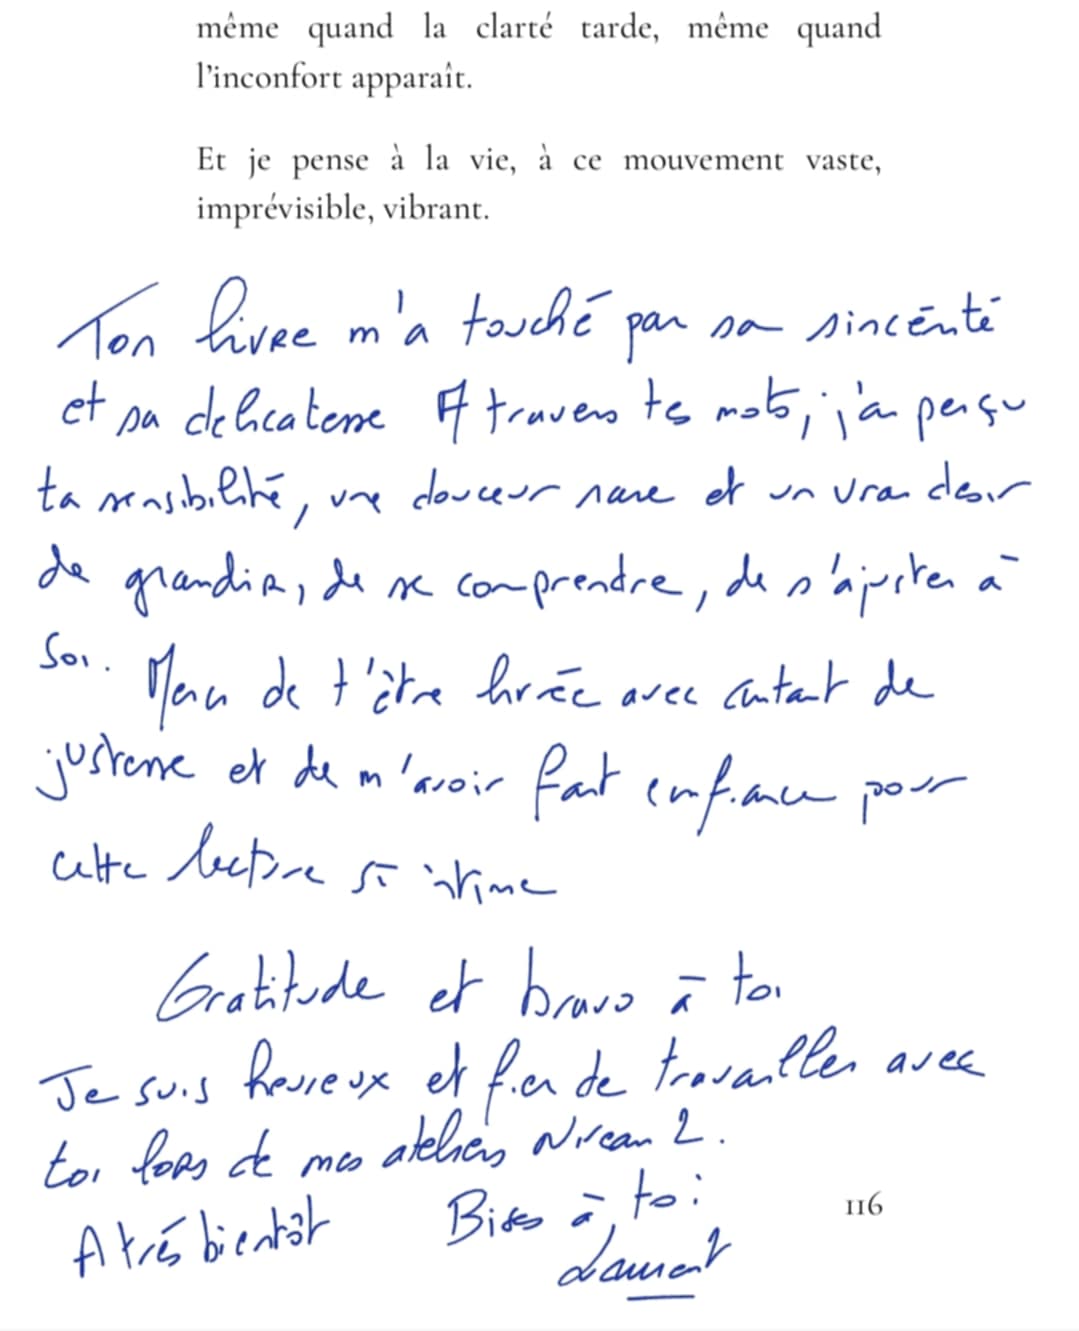 même quand la clarté tarde, même quand
l'inconfort apparaît.
Et je pense à la vie, à ce mouvement vaste,
imprévisible, vibrant.
Ton livre m'a touché par sa sincérité
et sa délicatesse A travers tes mots, j'ai perçu
ta sensibilité, une douceur rare et un vrai désir
de grandir, de se comprendre, de s'ajuster à
soi. Merci de t'être livrée avec autant de
justesse et de m'avoir fait confiance pour
cette lecture si intime
Gratitude et bravo à toi
Je suis heureux et fier de travailler avec
toi lors de mes ateliers Niveau 2.
A très bientôt Bises à toi
116
Laurent